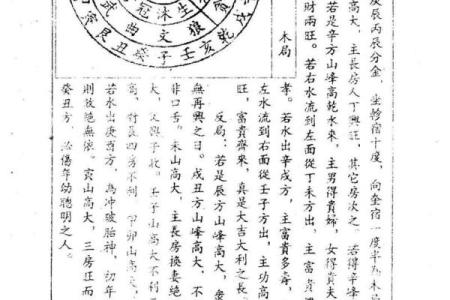 庚辰丙辰分金，坐軫宿十度，向奎宿一度半為木
高大，主長房人丁興旺，其它房次之。若得辛峰
若是辛方山峰高乾水來，主男得貴婦，女得貴夫
財兩旺。若右水流到左面從丁未方出，主富貴
孝。若水出辛戌方，主富貴多壽，
左水流到右面從壬子方出，主功高
旺，富貴齊來，真是大吉大利之
反局：若是辰方山峰高大，
無再興之日。戌丑方山峰高大，不
非口舌。未山高大，主長房換妻絕
大，又與子收。壬子山高大不利
高，對長四房不利。甲卯山高大，
若水出庚酉方，為冲破胎神，初年
則敗絕無依。寅山高大，三房
癸丑方，必傷年幼聰明之人。
木局
冠沐生
武曲文狼
寅艮丑癸子壬亥乾